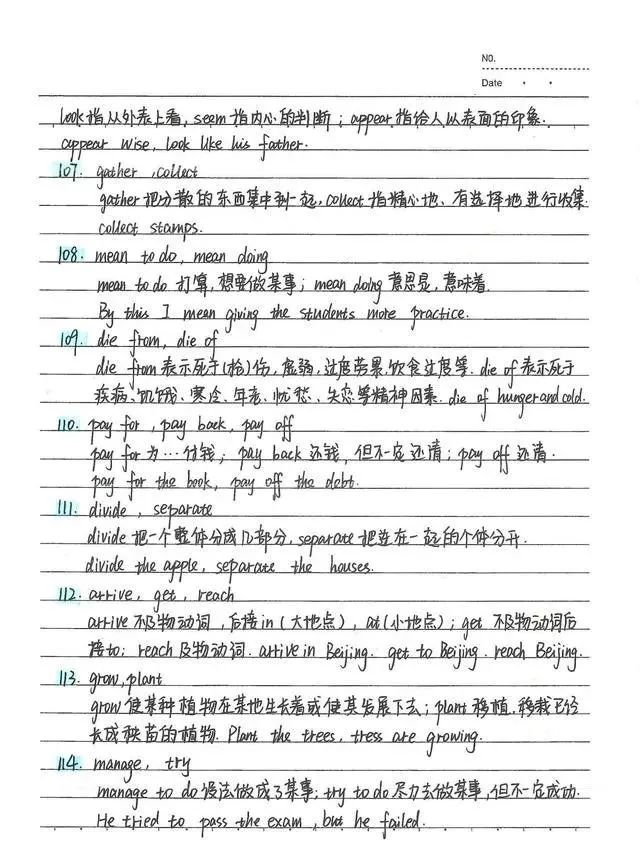 NO.
Date
look指从外表上看, seem指内心的判断; appear指给人以表面的印象.
appear wise, look like his father.
107. gather, collect
gather把分散的东西集中到一起, collect指精心地、有选择地进行收集
collect stamps.
108. mean to do, mean doing
mean to do 打算, 想要做某事; mean doing 意思是, 意味着.
By this I mean giving the students more practice.
109. die from, die of
die from表示死于(枪)伤, 虚弱, 过度劳累, 饮食过度等. die of 表示死于
疾病、饥饿、寒冷、年老、忧愁、失恋等精神因素. die of hunger and cold.
110. pay for, pay back, pay off
pay for 为…付钱; pay back 还钱, 但不一定还清; pay off 还清.
pay for the book, pay off the debt.
111. divide, separate
divide 把一个整体分成几部分, separate 把连在一起的个体分开.
divide the apple, separate the houses.
112. arrive, get, reach
arrive 不及物动词, 后接in(大地点), at(小地点); get 不及物动词后
接to; reach 及物动词. arrive in Beijing. get to Beijing. reach Beijing.
113. grow, plant
grow 使某种植物在某地生长着或使其发展下去; plant 移植. 移栽已经
长成秧苗的植物. Plant the trees, tress are growing.
114. manage, try
manage to do 设法做成了某事; try to do 尽力去做某事, 但不一定成功.
He tried to pass the exam, but he failed.